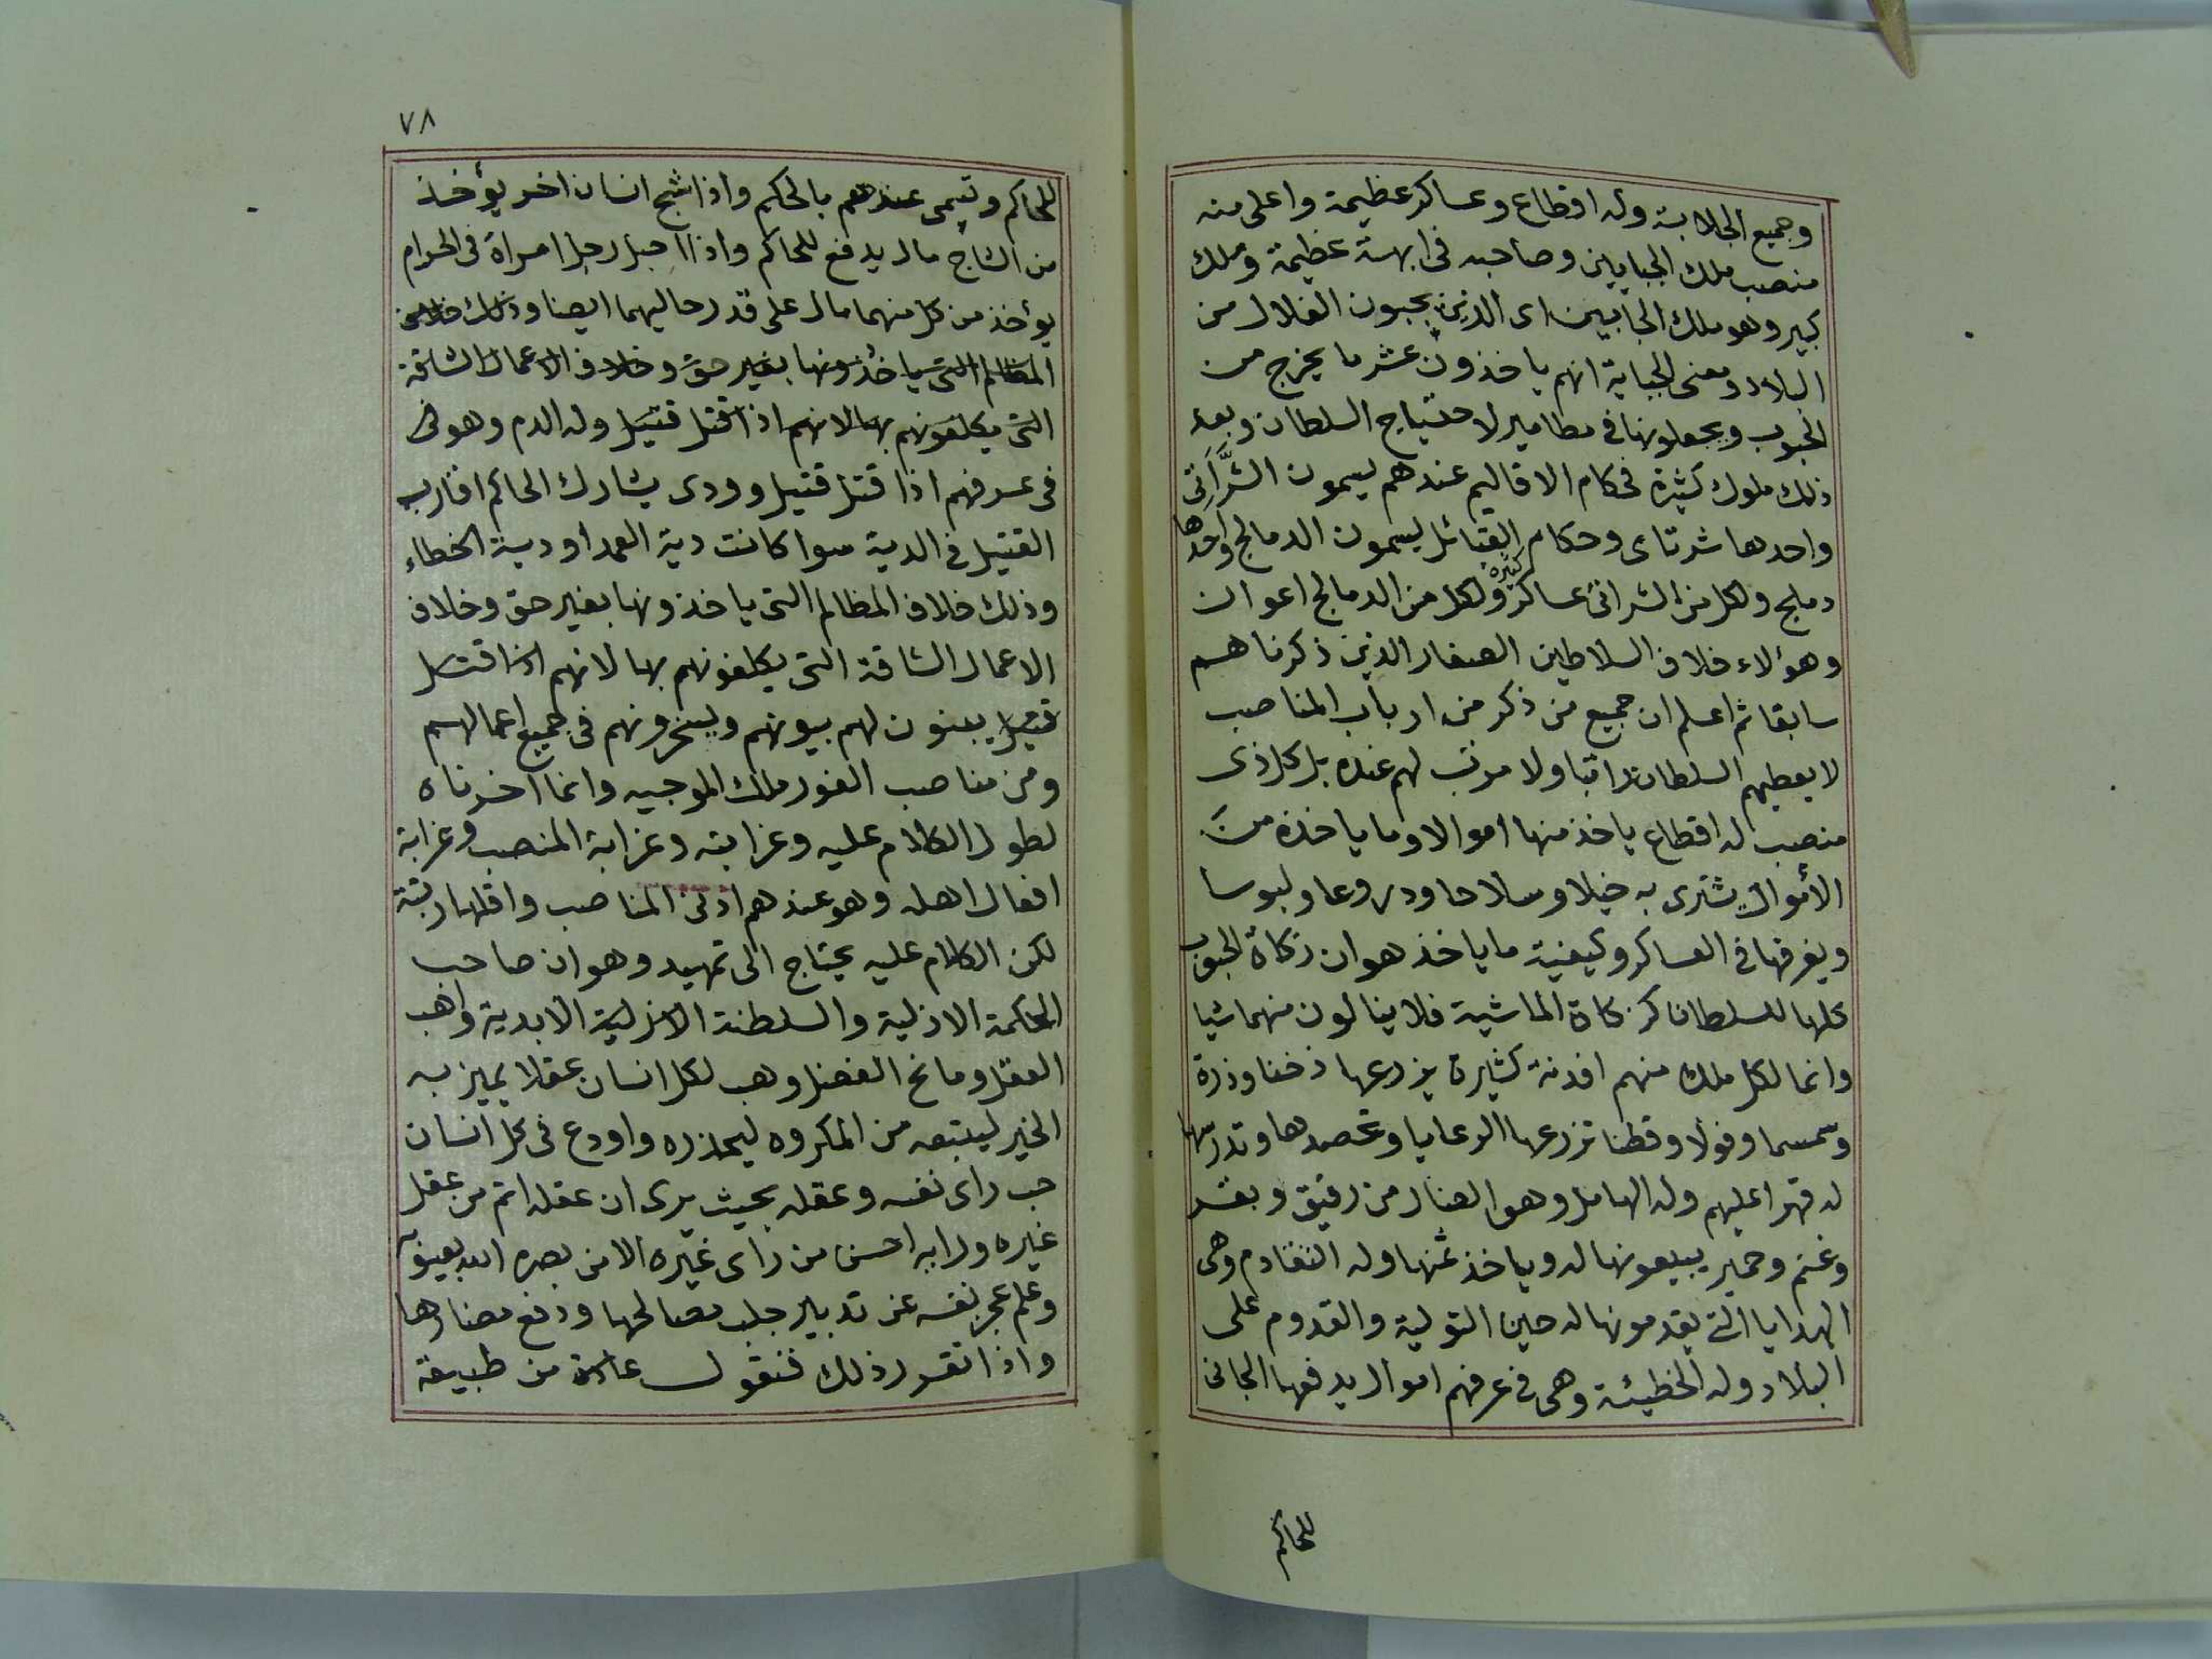 وجميع الجلابة وله اقطاع وعساكر عظيمة واعلى منه
منصب ملك الجبايين وصاحبه فى ابهة عظيمة وملك
كبير وهو ملك الجابيين اى الذين يجبون الغلال من
البلاد ومعنى الجباية انهم ياخذون عشر ما يخرج من
الحبوب ويجعلونها فى مطامير لاحتياج السلطان وبعد
ذلك ملوك كثيرة فحكام الاقاليم عندهم يسمون الشَّرَاتِى
واحدها شرتاى وحكام القبائل يسمون الدمالج واحدها
دملج ولكل من الشراتى عساكر كثيرة ولكل من الدمالج اعوان
وهؤلاء خلاف السلاطين الصغار الذين ذكرناهم
سابقا ثم اعلم ان جميع من ذكر من ارباب المناصب
لا يعطيهم السلطان راتبا ولا مرتب لهم عنده بل كل ذى
منصب له اقطاع ياخذ منها اموالا وما ياخذه من
الأموال يشترى به خيلا وسلاحا ودروعا ولبوسا
ويفرقها فى العساكر وكيفية ما ياخذ هو ان زكاة الحبوب
كلها للسلطان كزكاة الماشية فلا ينالون منهما شيا
وانما لكل ملك منهم افدنة كثيرة يزرعها دخنا وذرة
وسمسما وفولا وقطنا تزرعها الرعايا وتحصدها وتدرسها
له قهرا عليهم وله الهامل وهو الضال من رقيق وبقر
وغنم وحمير يبيعونها له وياخذ ثمنها وله التقادم وهى
الهدايا التى يقدمونها له حين التولية والقدوم على
البلاد وله الخطيئة وهى فى عرفهم اموال يدفعها الجانى
للحاكم
٧٨
للحاكم وتسمى عندهم بالحكم واذا شج انسان اخر يؤخذ
من الشاج مال يدفع للحاكم واذا احبل رجل امراة فى الحرام
يؤخذ من كل منهما مال على قدر حاليهما ايضا وذلك خلاف
المظالم التى ياخذونها بغير حق وخلاف الاعمال الشاقة
التى يكلفونهم بها لانهم اذا قتل قتيل وله الدم وهو فى
فى عرفهم اذا قتل قتيل وودى يشارك الحاكم اقاربه
القتيل فى الدية سوا كانت دية العمد او دية الخطاء
وذلك خلاف المظالم التى ياخذونها بغير حق وخلاف
الاعمال الشاقة التى يكلفونهم بها لانهم اذا قتل
قتيل يبنون لهم بيوتهم ويسخرونهم فى جميع اعمالهم
ومن مناصب الفور ملك الموجيه وانما اخرناه
لطول الكلام عليه وغرابته وغرابة المنصب وغرابة
افعال اهله وهو عندهم ادنى المناصب واقلها رتبة
لكن الكلام عليه يحتاج الى تمهيد وهو ان صاحب
الحكمة الازلية والسلطنة الازلية الابدية واهب
العقل ومانح الفضل وهب لكل انسان عقلا يميز به
الخير ليتبعه من المكروه ليحذره واودع فى كل انسان
حب راى نفسه وعقله بحيث يرى ان عقله اتم من عقل
غيره ورايه احسن من راى غيره الا من بصره الله بعيوبه
وعلم عجز نفسه عن تدبير جلب مصالحها ودفع مضارها
واذا تقرر ذلك فنقول عادة من طبيعة